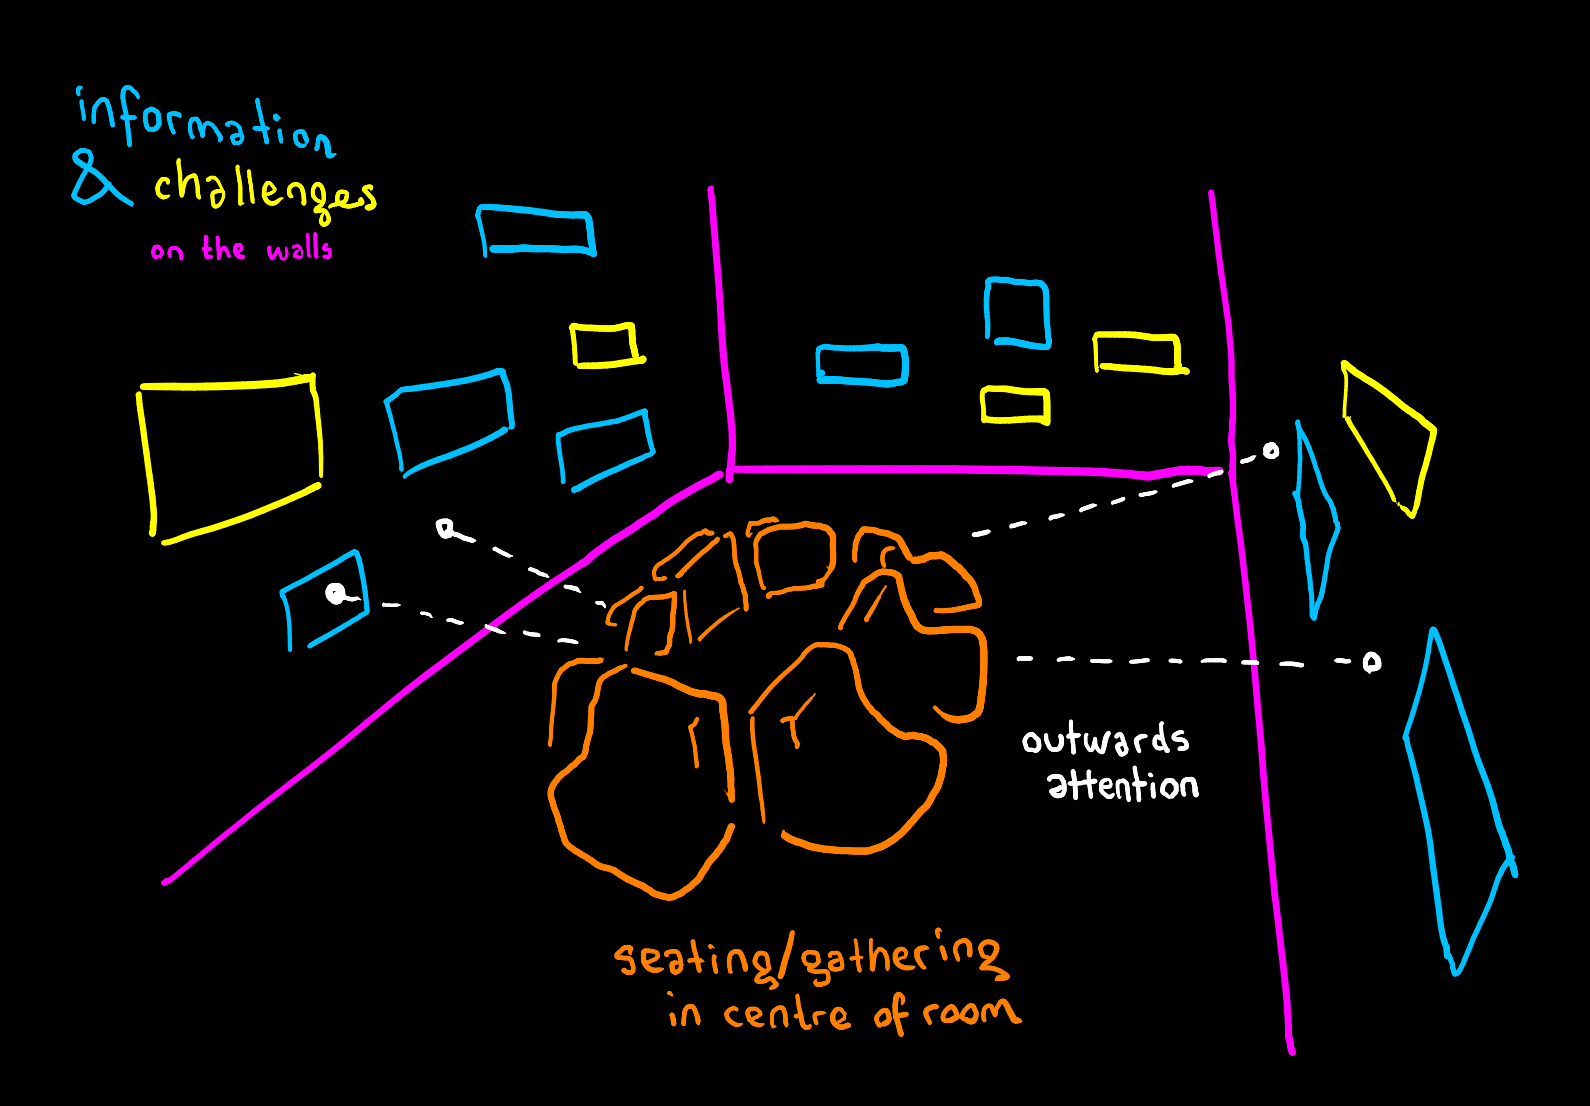 information
& challenges
on the walls
outwards
attention
seating/gathering
in centre of room